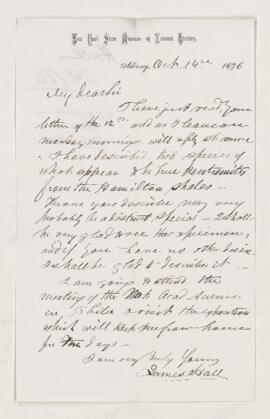 New York State Museum of Natural History,
Albany, Oct 14th 1876
My dear Sir
I have just recd your
letter of the 12th and as I leave on
monday morning will reply at once
I have described two species of
what appear to be true
from the Hamilton shales —
The one you describe may very
probably be a distinct species — I shall
be very glad to see the specimen,
and if you have no other desire
I shall be glad to describe it —
I am going to attend the
meeting of the Acad
in Phila & visit the exposition
which will keep me from home
for days —
I am very truly Yours
James Hall